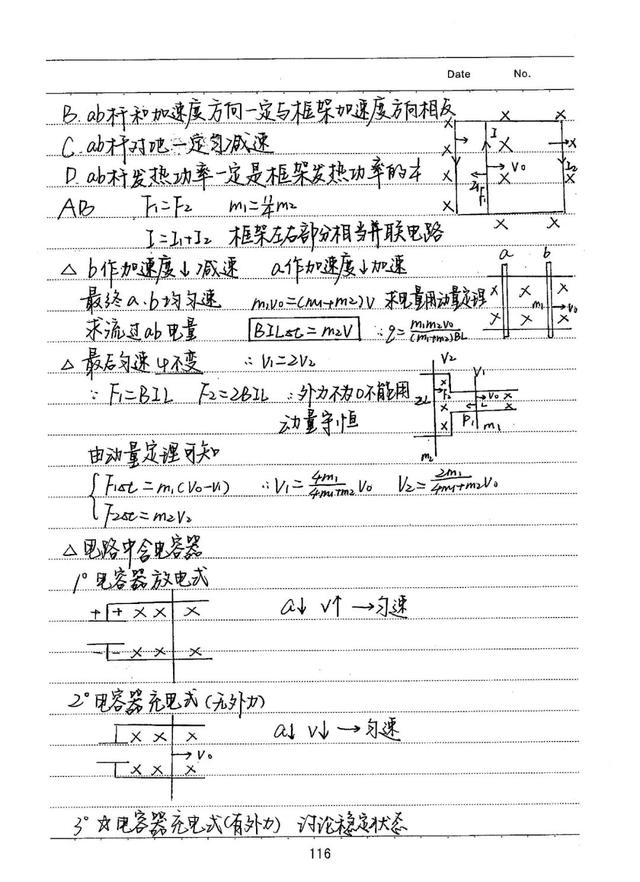 Date No.
B. ab杆和加速度方向一定与框架加速度方向相反
C. ab杆对地一定匀减速
D. ab杆发热功率一定是框架发热功率的
AB F₁=F₂ m₁=m₂
I=I₁+I₂ 框架左右部分相当并联电路
△ b作加速度↓减速 a作加速度↓加速
最终a.b均匀速 m₁v₀=(m₁+m₂)v 求电量用动量定理
求流过ab电量 BILΔt=m₂v ∴q=m₁m₂v₀/(m₁+m₂)BL
△ 最后匀速 φ不变 ∴V₁=2V₂
∵F₁=BIL F₂=2BIL ∴外力不为0不能用
动量守恒
由动量定理可知
F₁Δt=m₁(V₀-V₁) ∴V₁=4m₁/4m₁+m₂ V₀ V₂=2m₁/4m₁+m₂ V₀
F₂Δt=m₂V₂
△ 电路中含电容器
1° 电容器放电式
a↓ v↑ →匀速
2° 电容器充电式(无外力)
a↓ v↓ →匀速
3° ☆电容器充电式(有外力) 讨论稳定状态
116